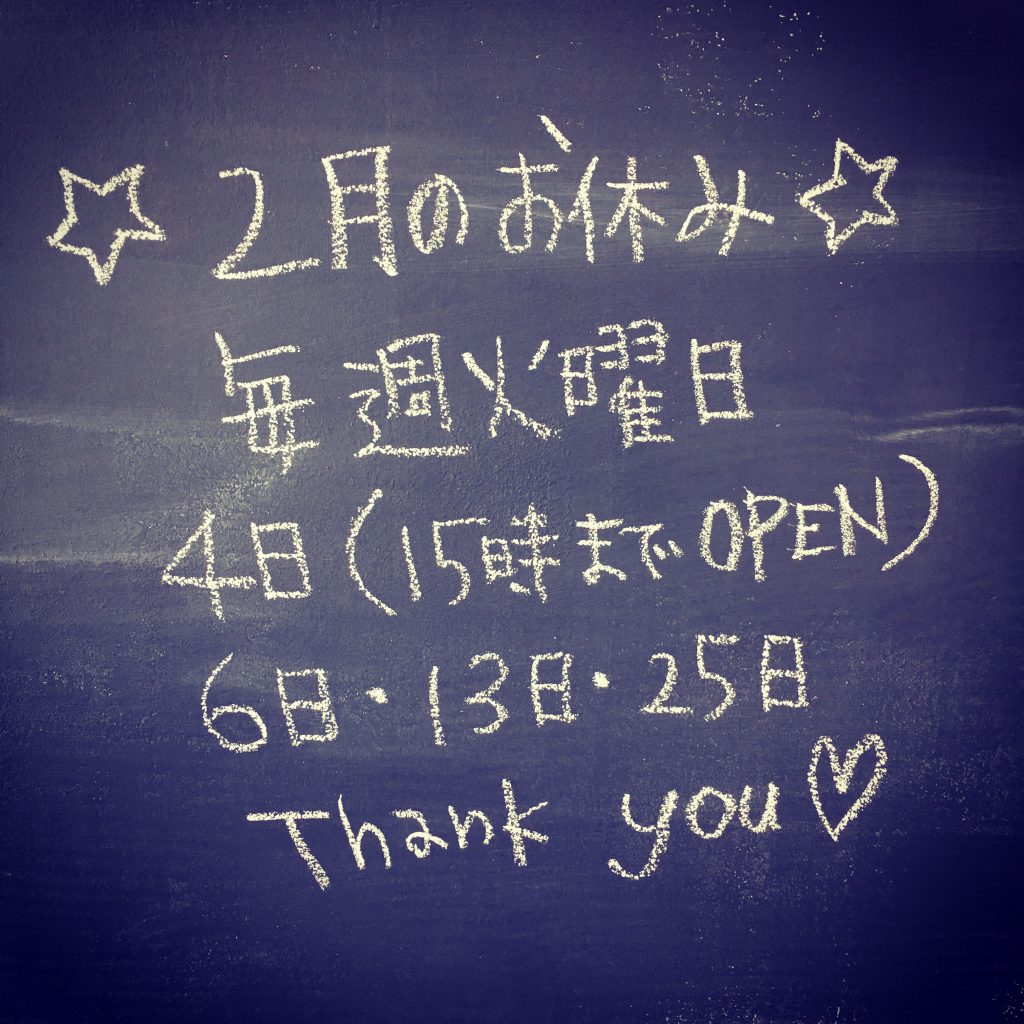 ☆2月のお休み☆
毎週火曜日
4日(15時までOPEN)
6日・13日・25日
Thank you♡